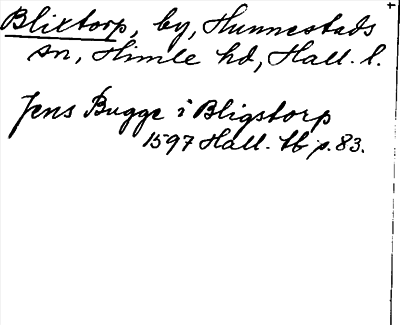 Blixtorp, by, Hunnestads
sn, Himle hd, Hall. l.
Jens Bugge i Bligstorp
1597 Hall. tb p. 83.